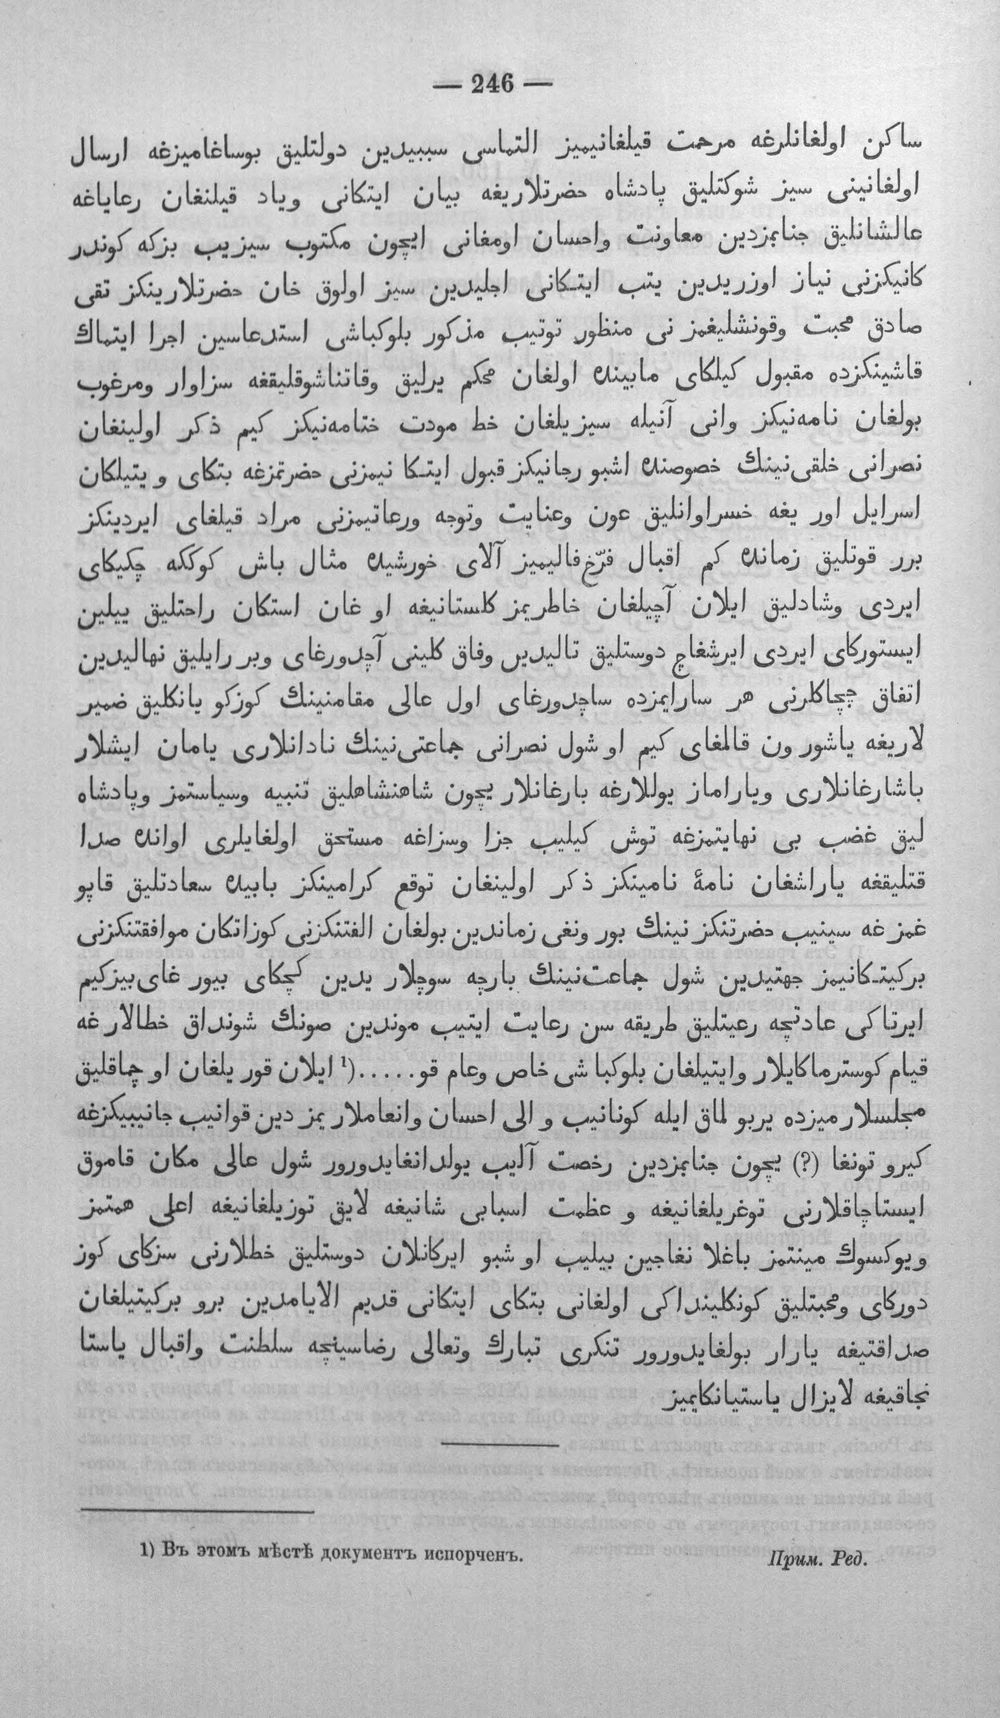 — 246 —
ساكن اولغانلرغه مرحمت قيلغانيميز التماسى سببيدين دولتليق بوساغاميزغه ارسال
اولغانينى سيز شوكتليق پادشاه حضرتلاريغه بيان ايتكانى وياد قيلنغان رعاياغه
عالشانليق جنابمزدين معاونت واحسان اومغانى ايچون مكتوب سيزيب بزكه كوندر
كانيكزنى نياز اوزريدين يتب ايتكانى اجليدين سيز اولوق خان حضرتلارينكز تقى
صادق محبت وقونشليغمز نى منظور توتيب مذكور بلوكباشى استدعاسين اجرا ايتماك
قاشينكزده مقبول كيلكاى مابينده اولغان محكم يرليق وقاتناشوقليقغه سزاوار ومرغوب
بولغان نامه‌نيكز وانى آنيله سيزيلغان خط مودت ختامه‌نيكز كيم ذكر اولينغان
نصرانى خلقى‌نينك خصوصنده اشبو رجانيكز قبول ايتكا نيمزنى حضرتمزغه بتكاى و يتيلكان
اسرايل اور يغه خسراوانليق عون وعنايت وتوجه ورعاتيمزنى مراد قيلغاى ايردينكز
برر قوتليق زمانده كم اقبال فرّخ فاليميز آلاى خورشيده مثال باش كوككه چكيكاى
ايردى وشادليق ايلان آچيلغان خاطريمز كلستانيغه او غان استكان راحتليق ييلين
ايستوركاى ايردى ايرشغاچ دوستليق تاليدين وفاق كلينى آچدورغاى وبر رايليق نهاليدين
اتفاق چچاكلرنى هر سارايمزده ساچدورغاى اول عالى مقامنينك كوزكو يانكليق ضمير
لاريغه ياشور ون قالمغاى كيم او شول نصرانى جماعتى‌نينك نادانلارى يامان ايشلار
باشارغانلارى وياراماز يوللارغه بارغانلار يچون شاهنشاهليق تنبيه وسياستمز وپادشاه
ليق غضب بى نهايتمزغه توش كيليب جزا وسزاغه مستحق اولغايلرى اوانده صدا
قتليقغه ياراشغان نامهٔ نامينكز ذكر اولينغان توقع كرامينكز بابيده سعادتليق قاپو
غمزغه سينيب حضرتنكز نينك بور ونغى زماندين بولغان الفتنكزنى كوزاتكان موافقتنكزنى
بركيتكانيمز جهتيدين شول جماعت‌نينك بارچه سوچلار يدين كچكاى بيور غاى‌بيزكيم
ايرتاكى عادتچه رعيتليق طريقه سن رعايت ايتيب موندين صونك شونداق خطالارغه
قيام كوسترماكايلار وايتيلغان بلوكبا شى خاص وعام قو.....(¹ ايلان قور يلغان او چماقليق
مجلسلارميزده يربو لماق ايله كونانيب و الى احسان وانعاملار يمز دين قوانيب جانيبيكزغه
كيرو تونغا (?) يچون جنابمزدين رخصت آليب يولدانغايدورور شول عالى مكان قاموق
ايستاچاقلارنى توغريلغانيغه و عظمت اسبابى شانيغه لايق توزيلغانيغه اعلى همتمز
ويوكسوك مينتمز باغلا نغاجين بيليب او شبو ايركانلان دوستليق خطلارنى سزكاى كوز
دوركاى ومحبتليق كونكلينداكى اولغانى بتكاى ايتكانى قديم الايامدين برو بركيتيلغان
صداقتيغه يارار بولغايدورور تنكرى تبارك وتعالى رضاسينچه سلطنت واقبال ياستا
نجاقيغه لايزال ياستيانكايميز
1) Въ этомъ мѣстѣ документъ испорченъ. Прим. Ред.